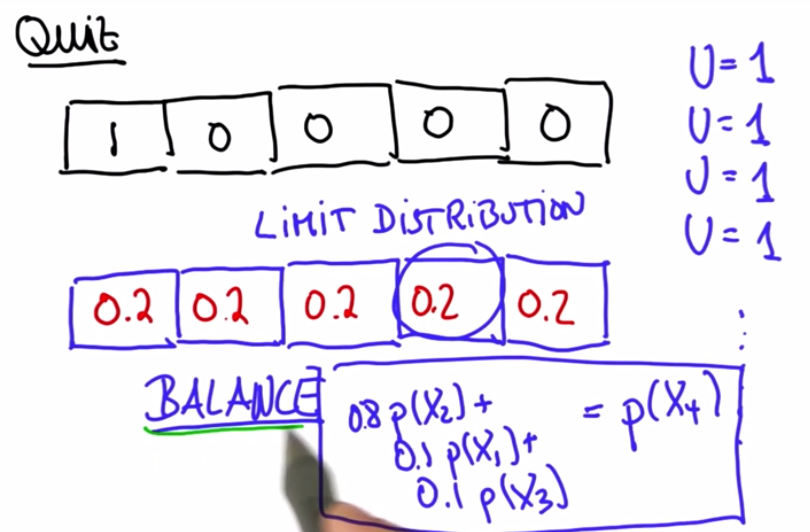 Quiz
1 0 0 0 0
U = 1
U = 1
U = 1
U = 1
LIMIT DISTRIBUTION
0.2 0.2 0.2 0.2 0.2
⋮
BALANCE
0.8 p(X₂) +
0.1 p(X₁) +
0.1 p(X₃)
= p(X₄)